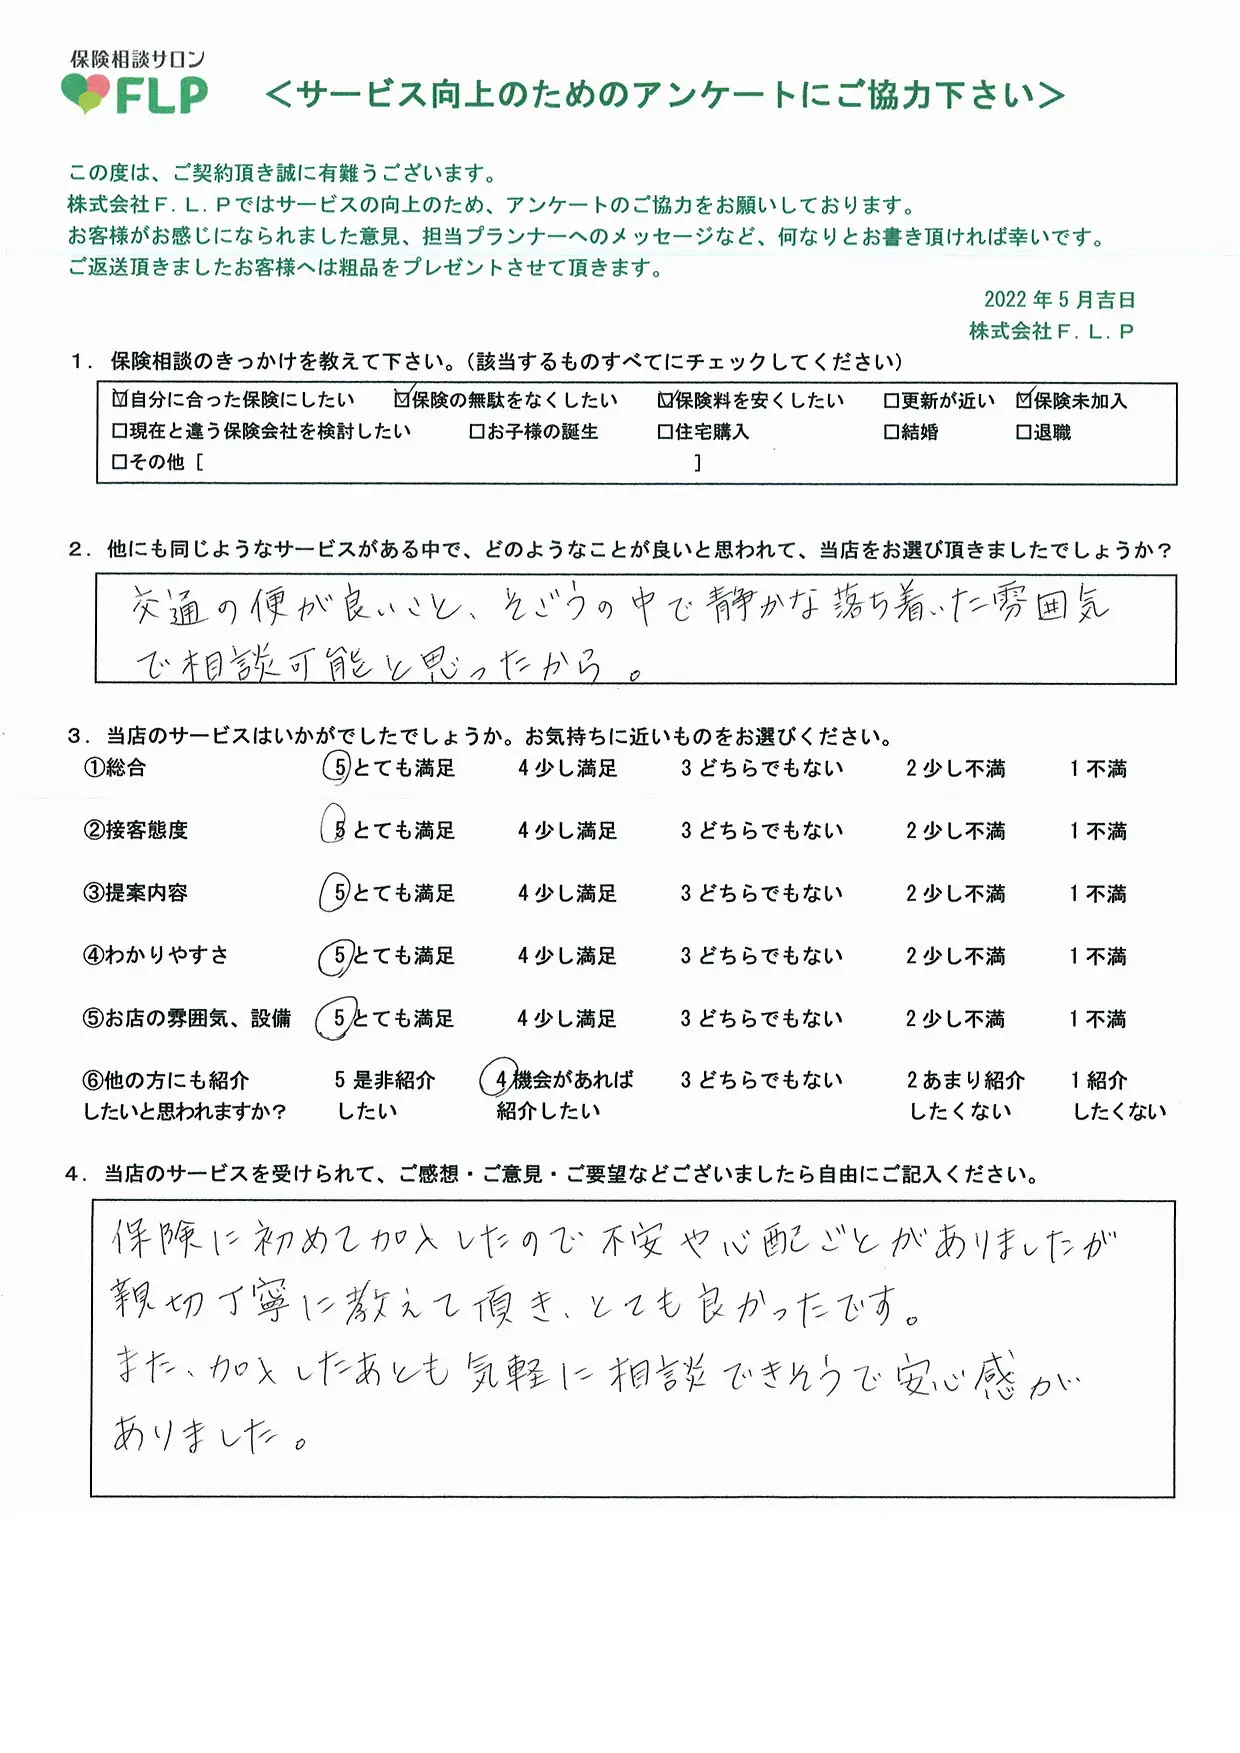 保険相談サロン
FLP
＜サービス向上のためのアンケートにご協力下さい＞
この度は、ご契約頂き誠に有難うございます。
株式会社Ｆ.Ｌ.Ｐではサービスの向上のため、アンケートのご協力をお願いしております。
お客様がお感じになられました意見、担当プランナーへのメッセージなど、何なりとお書き頂ければ幸いです。
ご返送頂きましたお客様へは粗品をプレゼントさせて頂きます。
2022 年 5 月吉日
株式会社Ｆ.Ｌ.Ｐ
１．保険相談のきっかけを教えて下さい。（該当するものすべてにチェックしてください）
☑自分に合った保険にしたい ☑保険の無駄をなくしたい ☑保険料を安くしたい □更新が近い ☑保険未加入
□現在と違う保険会社を検討したい □お子様の誕生 □住宅購入 □結婚 □退職
□その他［ ］
２．他にも同じようなサービスがある中で、どのようなことが良いと思われて、当店をお選び頂きましたでしょうか？
交通の便が良いこと、そごうの中で静かな落ち着いた雰囲気
で相談可能と思ったから。
３．当店のサービスはいかがでしたでしょうか。お気持ちに近いものをお選びください。
①総合 5 とても満足 4 少し満足 3 どちらでもない 2 少し不満 1 不満
②接客態度 5 とても満足 4 少し満足 3 どちらでもない 2 少し不満 1 不満
③提案内容 5 とても満足 4 少し満足 3 どちらでもない 2 少し不満 1 不満
④わかりやすさ 5 とても満足 4 少し満足 3 どちらでもない 2 少し不満 1 不満
⑤お店の雰囲気、設備 5 とても満足 4 少し満足 3 どちらでもない 2 少し不満 1 不満
⑥他の方にも紹介 5 是非紹介 4 機会があれば 3 どちらでもない 2 あまり紹介 1 紹介
したいと思われますか？ したい 紹介したい したくない したくない
４．当店のサービスを受けられて、ご感想・ご意見・ご要望などございましたら自由にご記入ください。
保険に初めて加入したので不安や心配ごとがありましたが
親切丁寧に教えて頂き、とても良かったです。
また、加入したあとも気軽に相談できそうで安心感が
ありました。